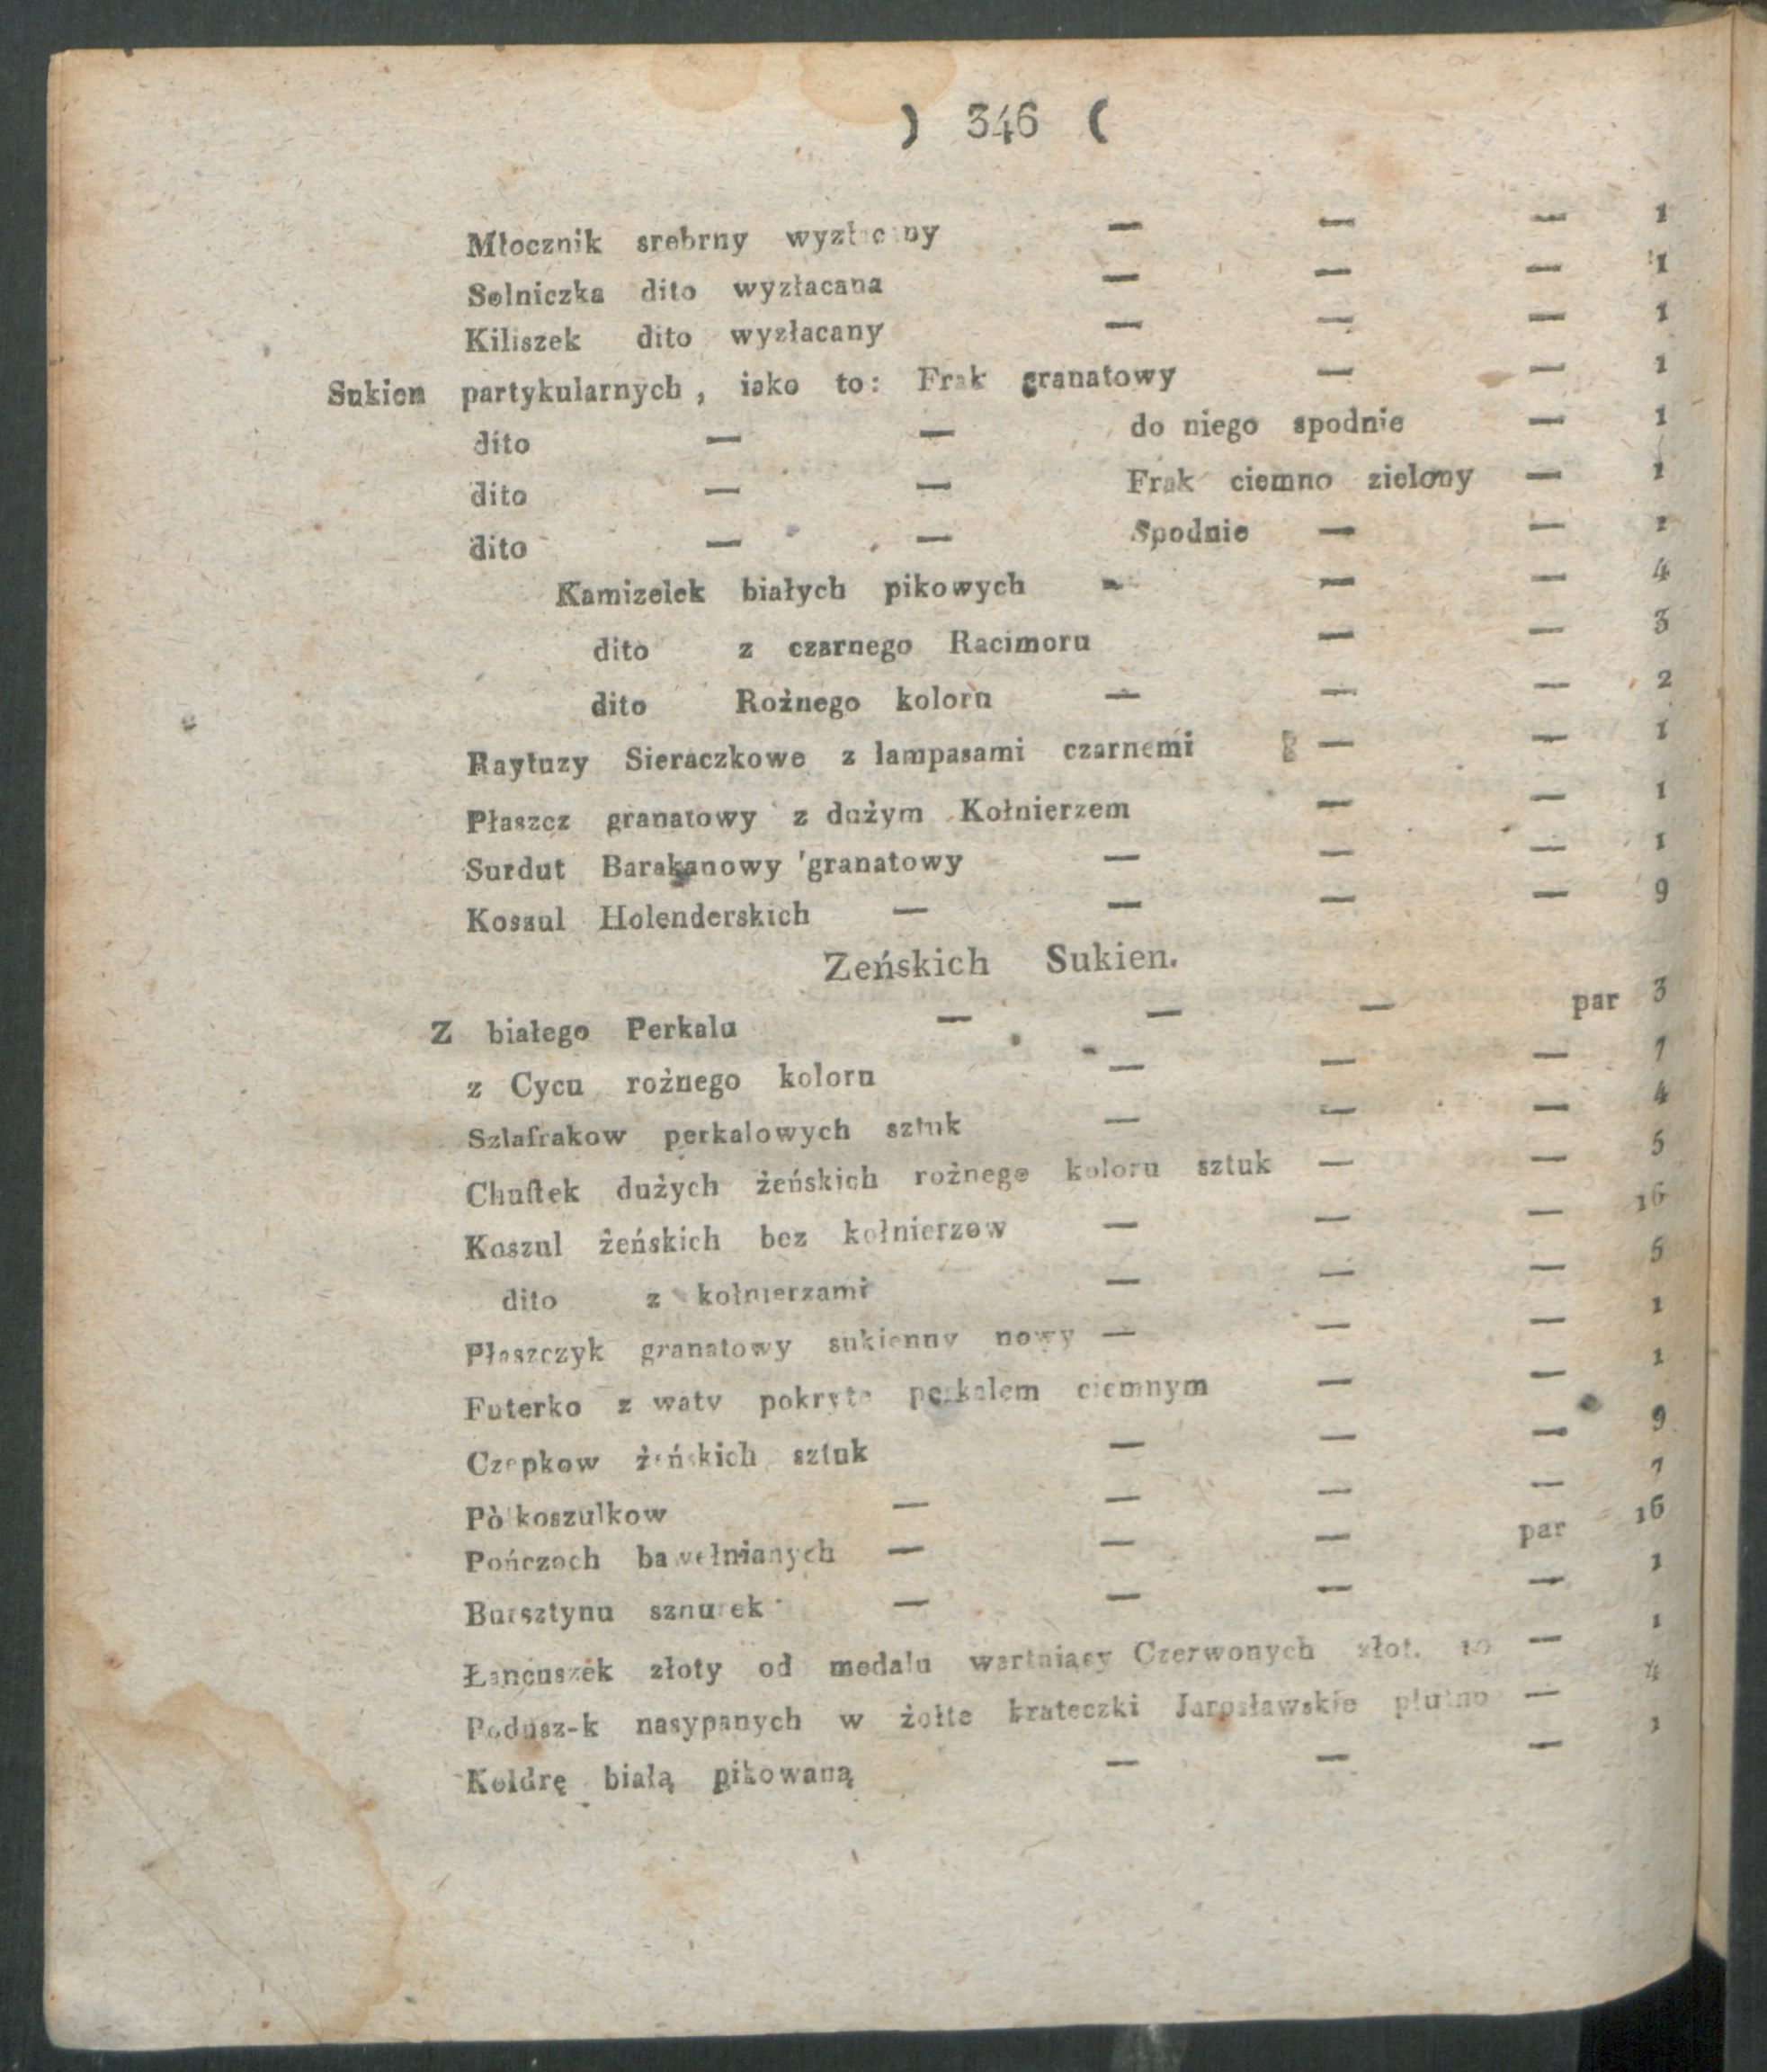 ) 346 (
Młocznik srebrny wyzłacany — — — 1
Solniczka dito wyzłacana — — — 1
Kiliszek dito wyzłacany — — — 1
Sukien partykularnych, iako to: Frak granatowy — — 1
dito — — do niego spodnie — 1
dito — — Frak ciemno zielony — 1
dito — — Spodnie — — 1
Kamizelek białych pikowych — — — 4
dito z czarnego Racimoru — — 3
dito Rożnego koloru — — — 2
Raytuzy Sieraczkowe z lampasami czarnemi — — 1
Płaszcz granatowy z dużym Kołnierzem — — 1
Surdut Barakanowy granatowy — — — 1
Koszul Holenderskich — — — — 9
Zeńskich Sukien.
Z białego Perkalu — — — par 3
z Cycu rożnego koloru — — — 7
Szlafrakow perkalowych sztuk — — — 4
Chuſtek dużych żeńskich rożnego koloru sztuk — — 5
Koszul żeńskich bez kołnierzow — — — 16
dito z kołnierzami — — — 5
Płaszczyk granatowy sukienny nowy — — — 1
Futerko z waty pokryte perkalem ciemnym — — 1
Czepkow żeńskich sztuk — — — 9
Pòłkoszulkow — — — — 7
Pończoch bawełnianych — — — par 16
Bursztynu sznurek — — — — 1
Łancuszek złoty od medalu wartuiący Czerwonych złot. 10 — 1
Podusz-k nasypanych w żołte krateczki Jarosławskie płutno — 4
Kołdrę białą pikowaną — — — 1